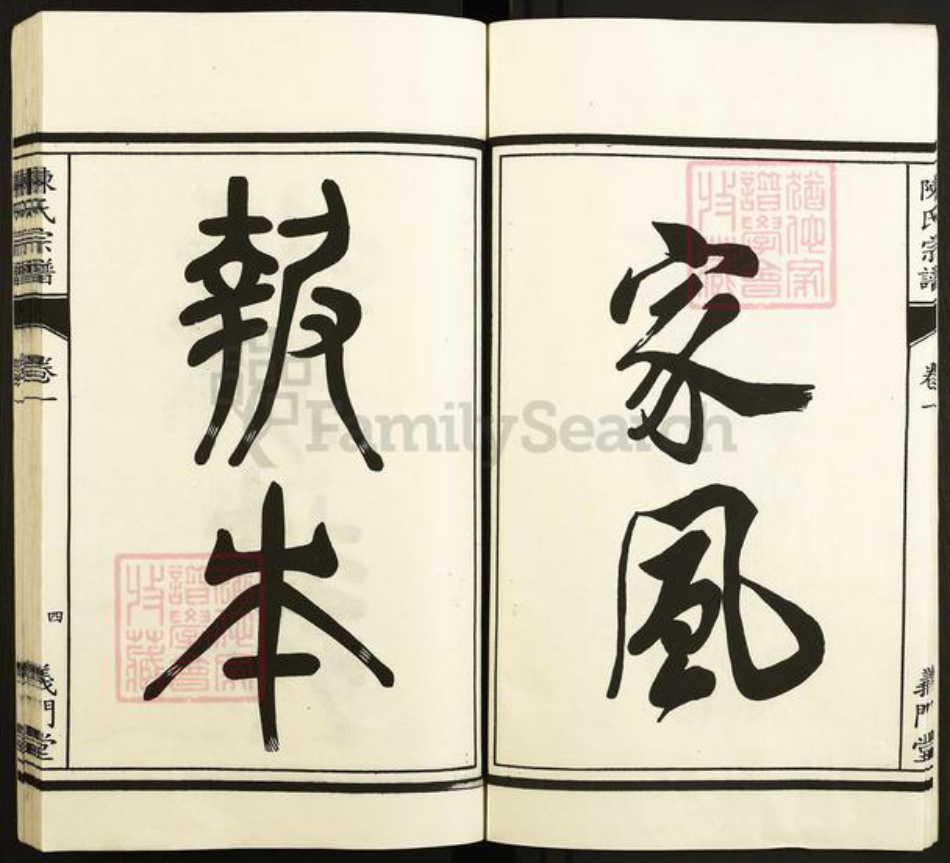 陳氏宗譜
卷一
義門堂
家風
猶他家
譜學會
收藏
報本
猶他家
譜學會
收藏
陳氏宗譜
卷一
四
義門堂
FamilySearch